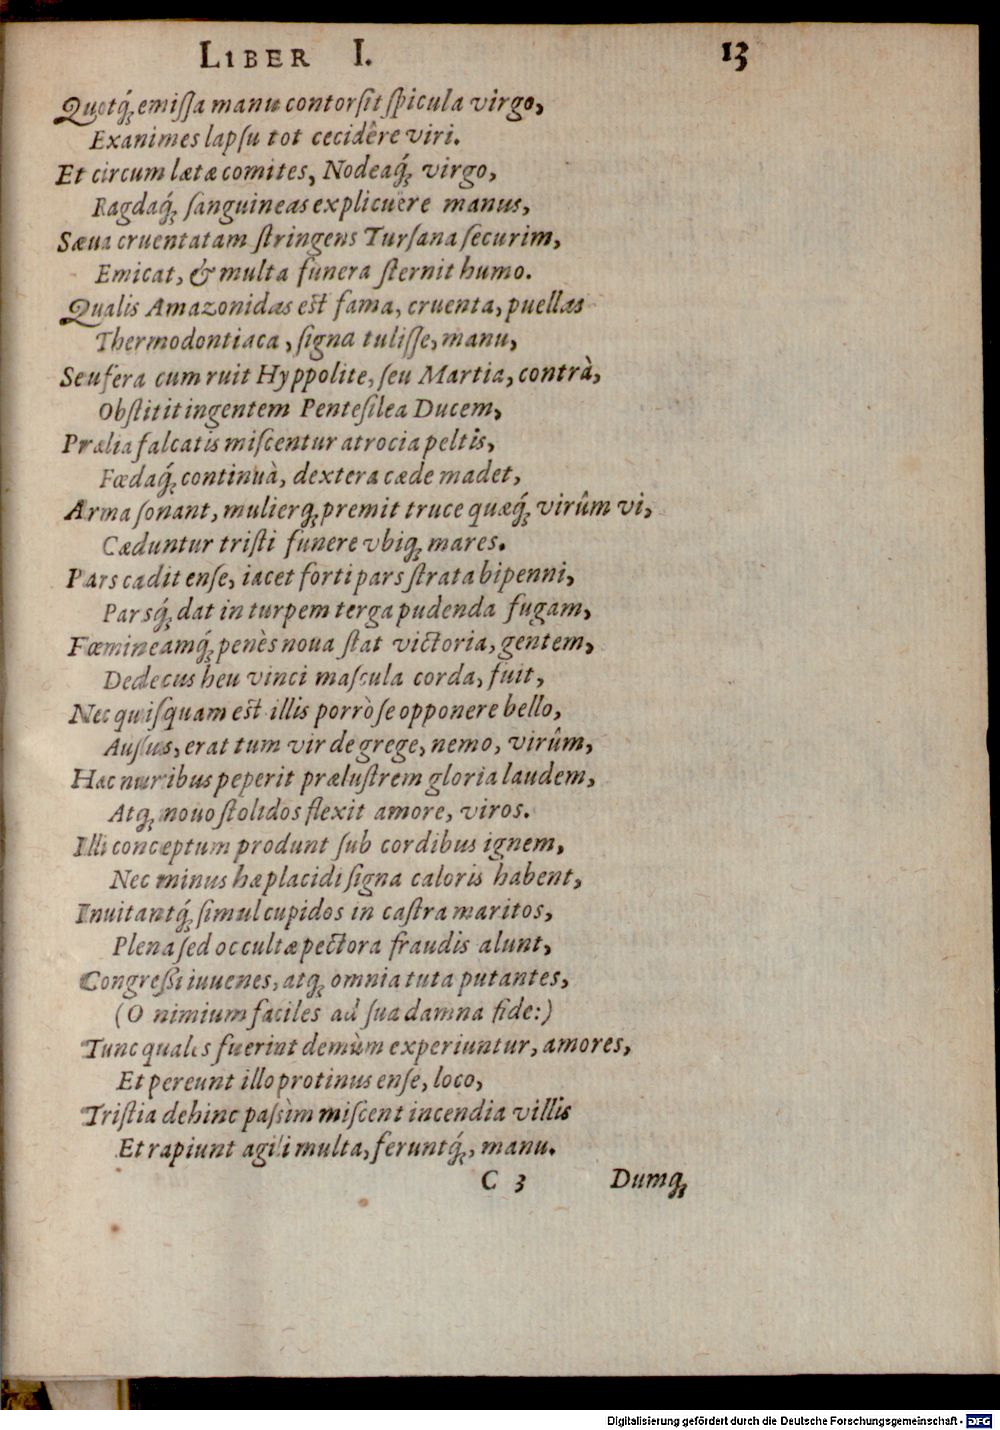 LIBER I. 13
Quotq́; emiſſa manu contorſit ſpicula virgo,
Exanimes lapſu tot cecidêre viri.
Et circum lætæ comites, Nodeaq́; virgo,
Ragdaq́; ſanguineas explicuêre manus,
Sæua cruentatam ſtringens Turſana ſecurim,
Emicat, & multa funera ſternit humo.
Qualis Amazonidas eſt fama, cruenta, puellas
Thermodontiaca, ſigna tuliſſe, manu,
Seu fera cum ruit Hyppolite, ſeu Martia, contrà,
Obſtitit ingentem Penteſilea Ducem,
Prælia falcatis miſcentur atrocia peltis,
Fœdaq́; continuà, dextera cæde madet,
Arma ſonant, mulierq; premit truce quæq́; virûm vi,
Cæduntur triſti funere vbiq; mares.
Pars cadit enſe, iacet forti pars ſtrata bipenni,
Parsq́; dat in turpem terga pudenda fugam,
Fœmineamq́; penès noua ſtat victoria, gentem,
Dedecus heu vinci maſcula corda, fuit,
Nec quiſquam eſt illis porrò ſe opponere bello,
Auſus, erat tum vir de grege, nemo, virûm,
Hac nuribus peperit præluſtrem gloria laudem,
Atq; nouo ſtolidos flexit amore, viros.
Illi conceptum produnt ſub cordibus ignem,
Nec minus hæ placidi ſigna caloris habent,
Inuitantq́; ſimul cupidos in caſtra maritos,
Plena ſed occultæ pectora fraudis alunt,
Congreſſi iuuenes, atq; omnia tuta putantes,
(O nimium faciles ad ſua damna fide:)
Tunc quales fuerint demùm experiuntur, amores,
Et pereunt illo protinus enſe, loco,
Triſtia dehinc paſsìm miſcent incendia villis
Et rapiunt agili multa, feruntq́;, manu.
C 3 Dumq;
Digitalisierung gefördert durch die Deutsche Forschungsgemeinschaft - DFG